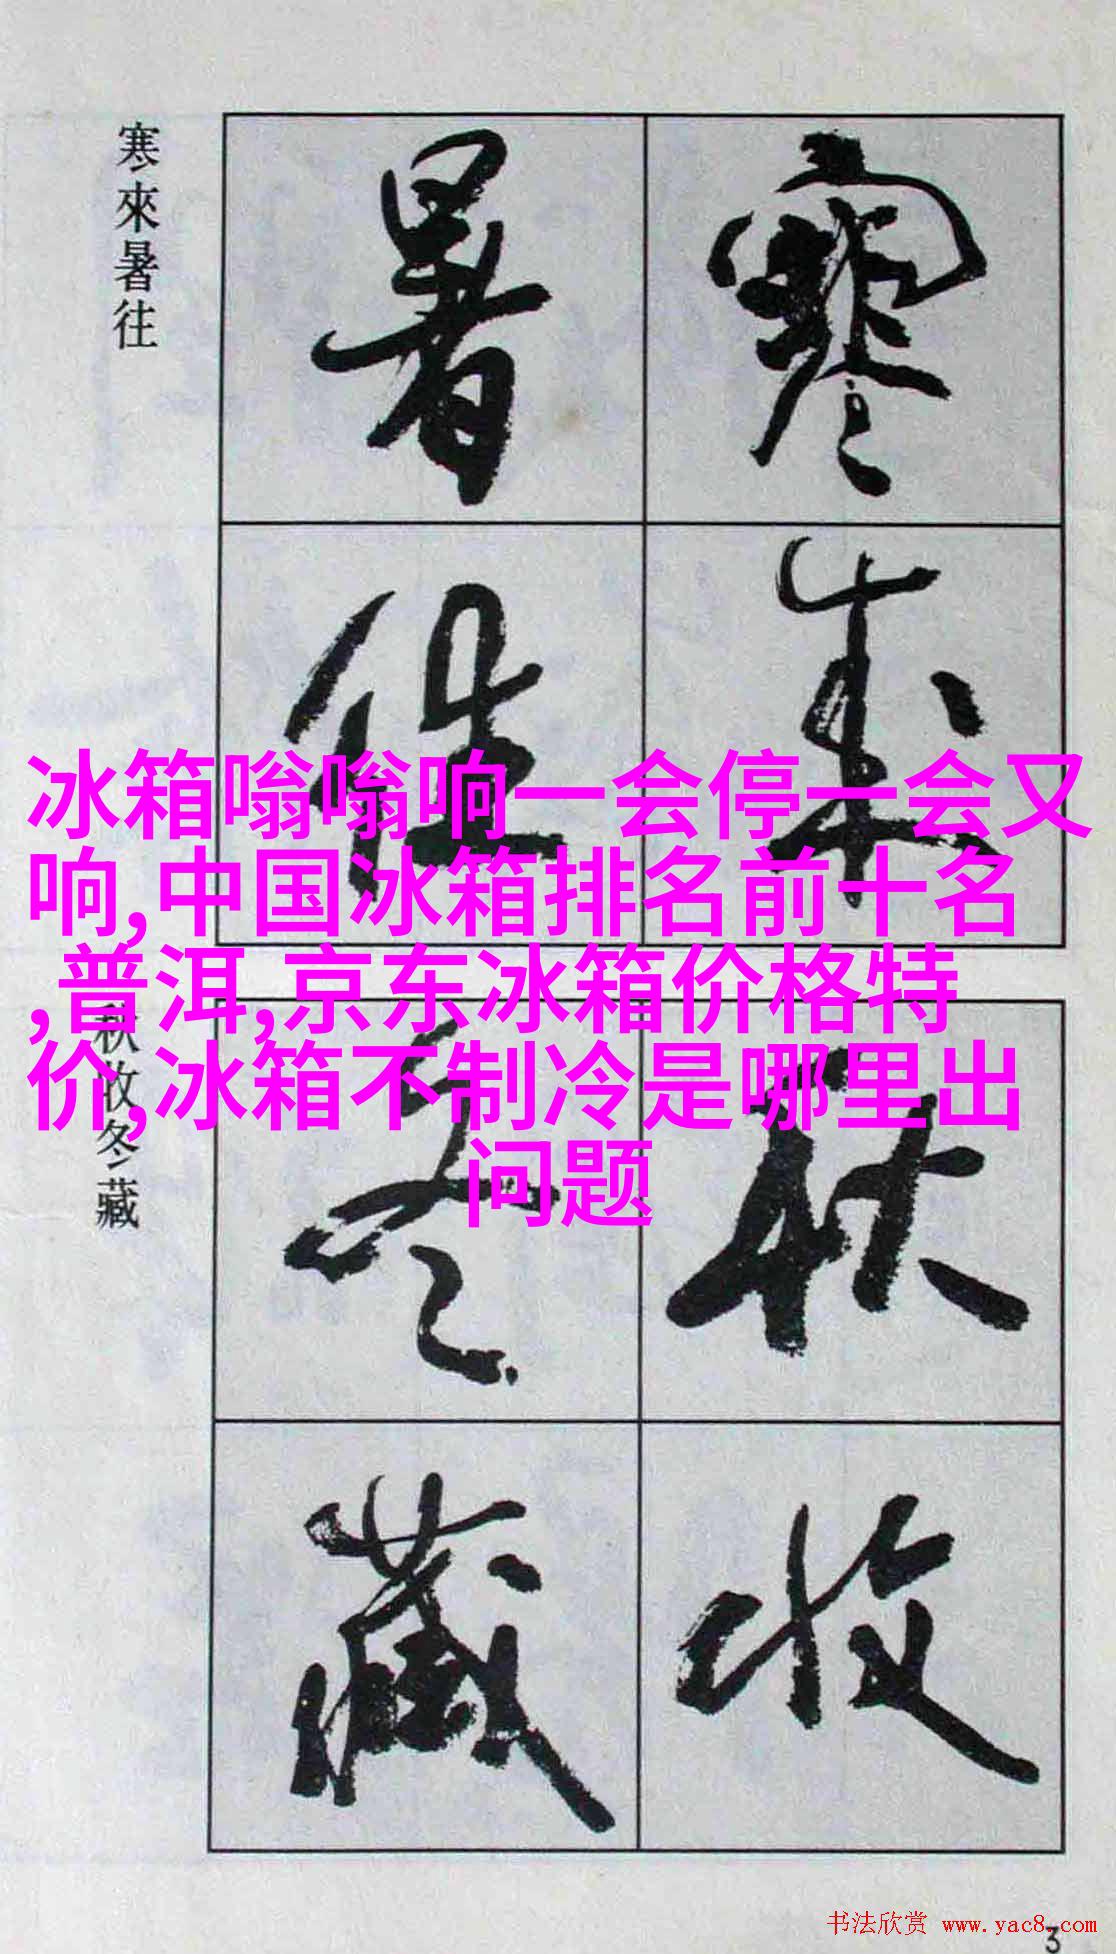 寒來暑往
寒來
暑往
冰箱嗡嗡响一会停一会又
响,中国冰箱排名前十名
,普洱,京东冰箱价格特
价,冰箱不制冷是哪里出
问题
秋收冬藏
秋收
冬藏
书法欣赏 www.yac8.com
3